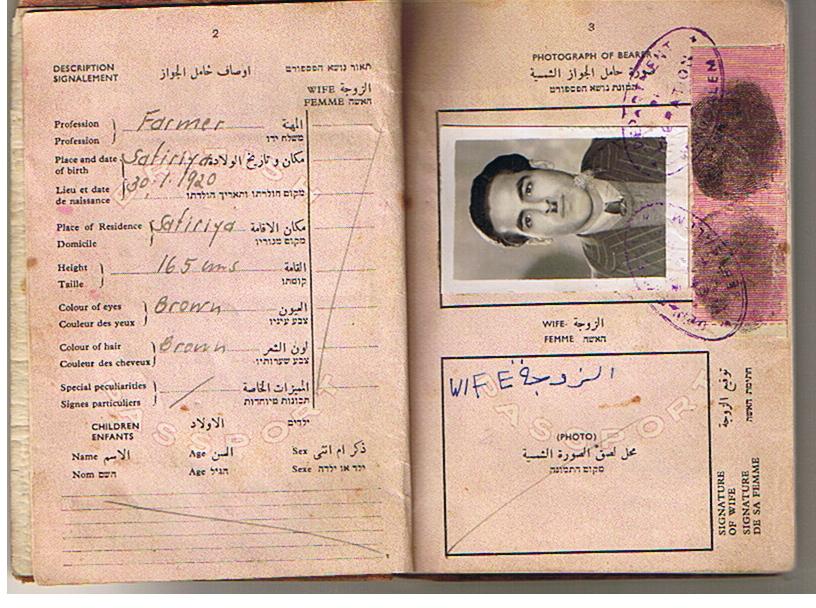 2
DESCRIPTION
SIGNALEMENT
اوصاف حامل الجواز
תאור נושא הפספורט
WIFE الزوجة
FEMME האשה
Profession Farmer المهنة
Profession משלח ידו
Place and date of birth Safiriya مكان و تاريخ الولادة
30.1.1920
Lieu et date de naissance מקום הולדתו ותאריך הולדתו
Place of Residence Safiriya مكان الاقامة
Domicile מקום מגוריו
Height 165 cms القامة
Taille קומתו
Colour of eyes Brown العيون
Couleur des yeux צבע עיניו
Colour of hair Brown لون الشعر
Couleur des cheveux צבע שערותיו
Special peculiarities المميزات الخاصة
Signes particuliers תכונות מיוחדות
CHILDREN الاولاد ילדים
ENFANTS
Name الاسم Age السن Sex ذكر ام انثى
Nom השם Age הגיל Sexe ילד או ילדה
PASSPORT
3
PHOTOGRAPH OF BEARER
صورة حامل الجواز الشمسية
תמונת נושא הפספורט
WIFE- الزوجة
FEMME האשה
WIFE الزوجة
(PHOTO)
محل لصق الصورة الشمسية
מקום התמונה
PASSPORT
SIGNATURE OF WIFE
SIGNATURE DE SA FEMME
توقيع الزوجة
חתימת האשה